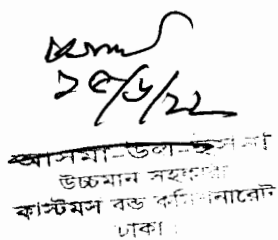 ১৫/৬/২২
আসমা-উল-হুসনা
উচ্চমান সহকারী
কাস্টমস বন্ড কমিশনারেট
ঢাকা।